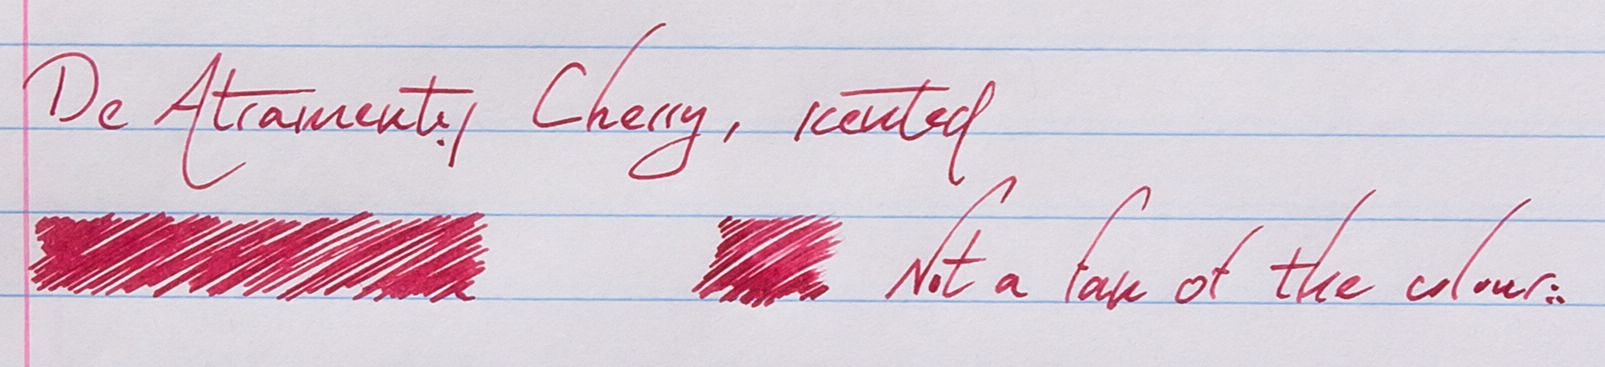 De Atramentis, Cherry, scented
Not a fan of the colour.